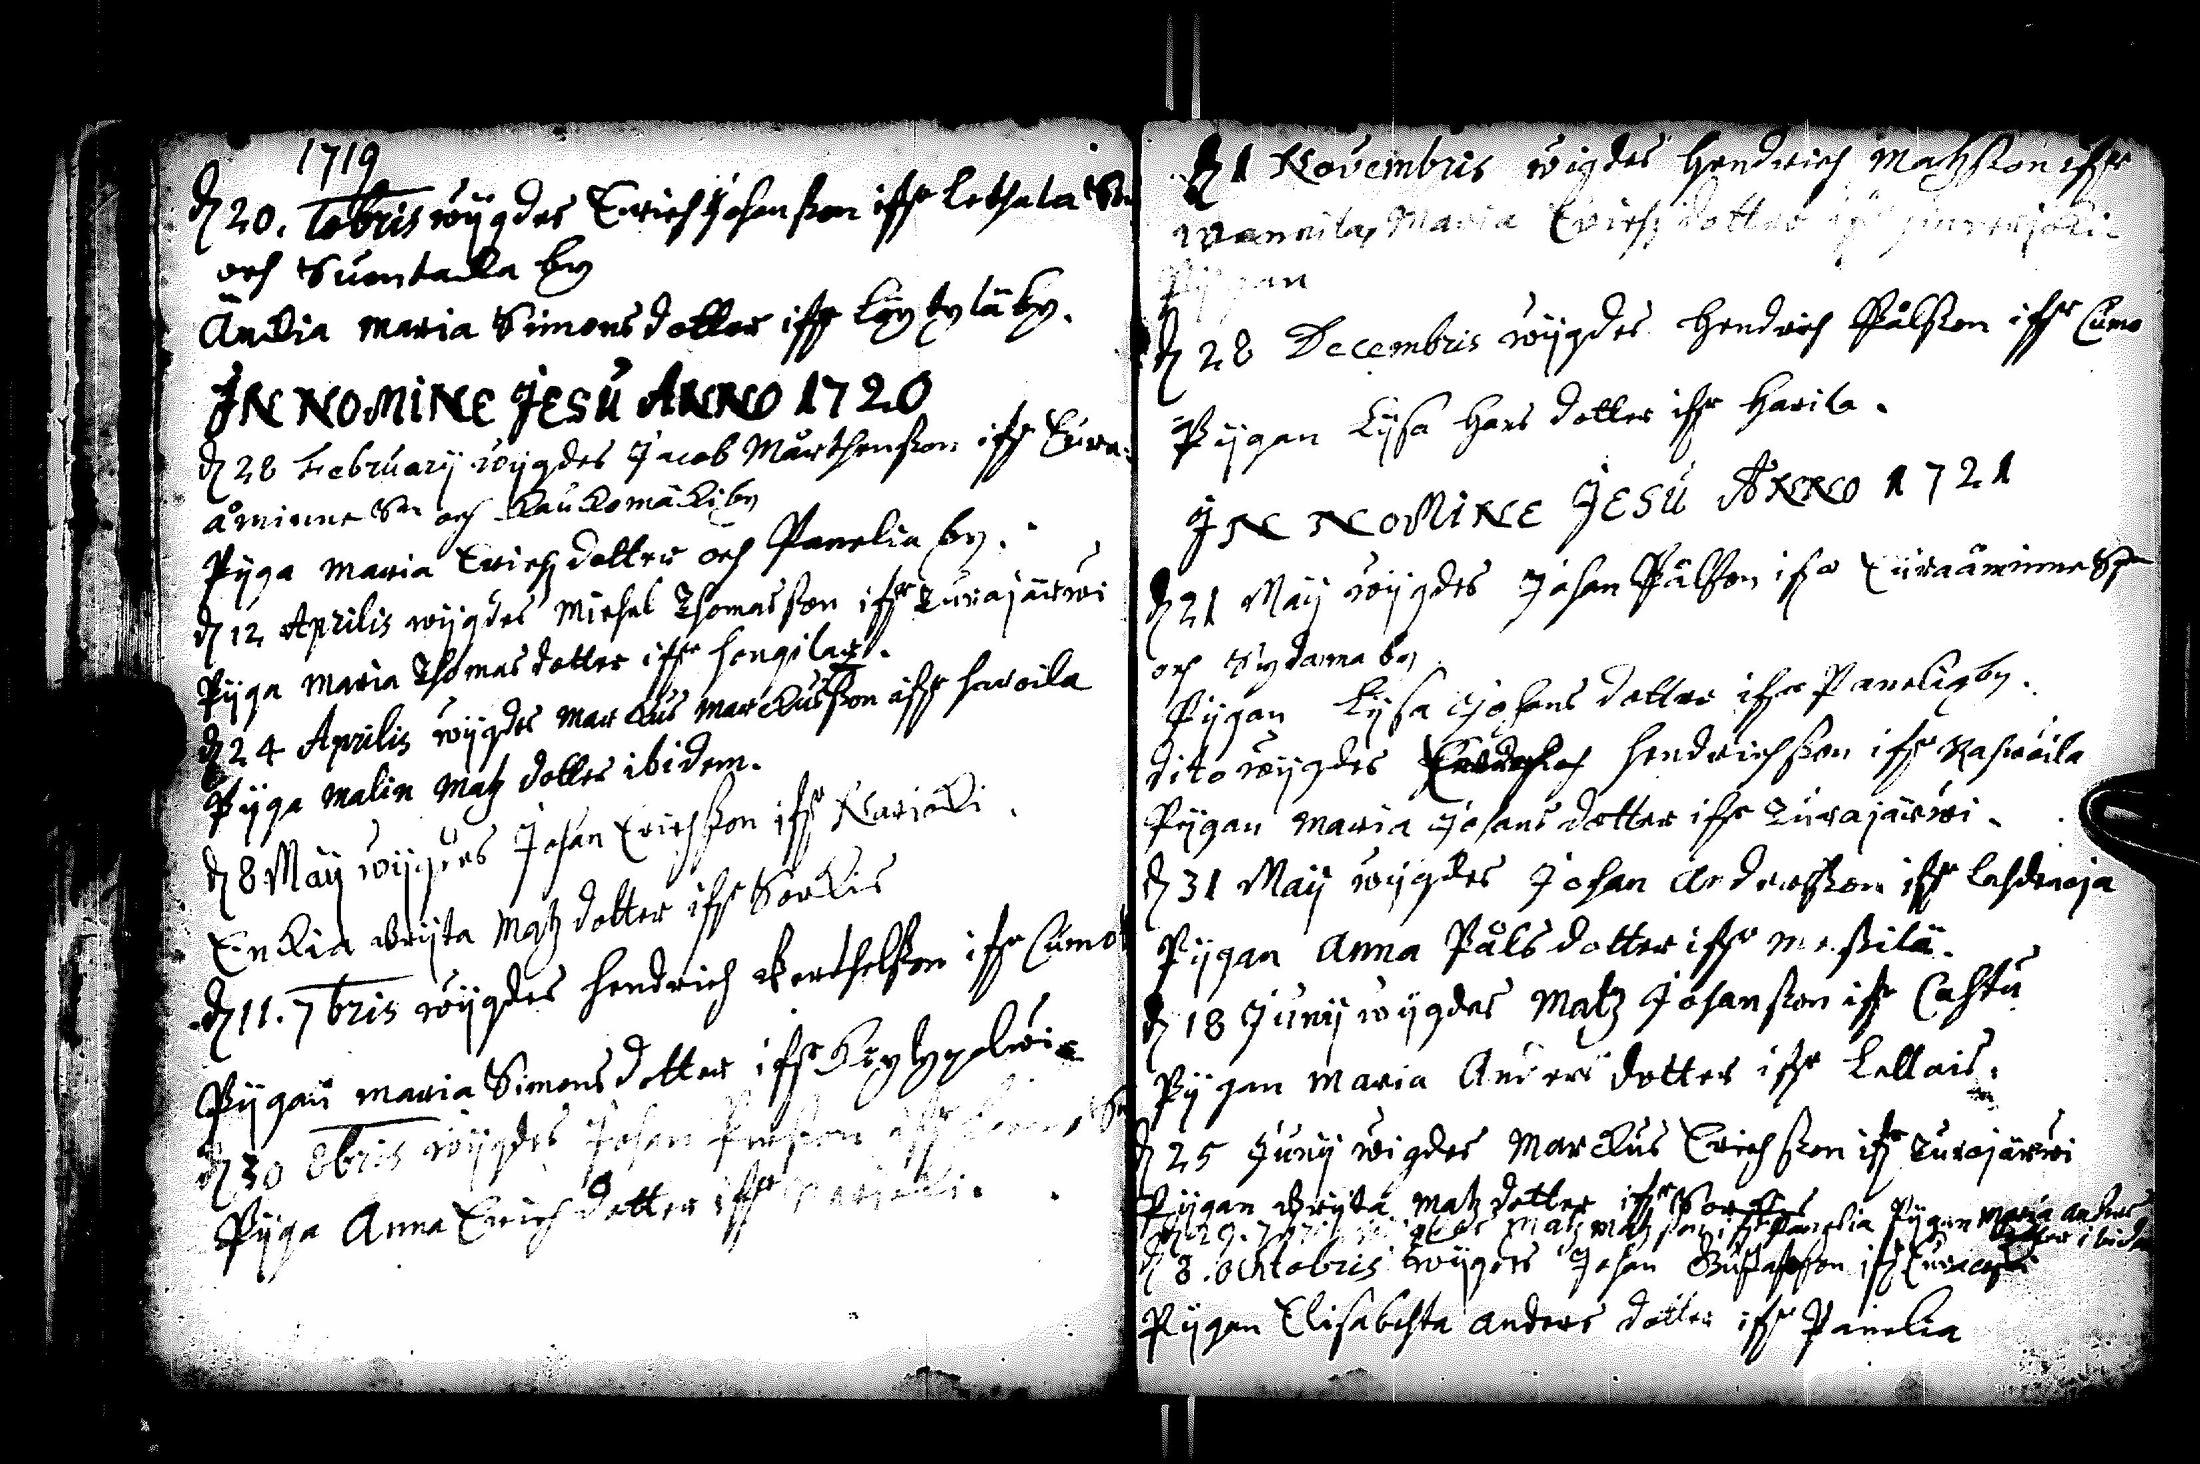 1719
d 20. Xbris wÿgdes Erich Johanßon ifrå Lethala Sn
och Suontacka by
Änckia Maria Simons dotter ifrå Löytylä by.
IN NOMINE JESU ANNO 1720
d 28 Februarÿ wÿgdes Jacob Mårthenßon ifrå Eura
åminne Sn och Kauckomäcki by
Pÿga Maria Erichz dotter och Panelia by.
d 12 Aprilis wÿgdes Michel Thomasßon ifrå Turajärwi
Pÿga Maria Thomas dotter ifrå Hongilax.
d 24 Aprilis wÿgdes Marckus Marckusßon ifrå Haroila
Pÿga Malin Matz dotter ibidem.
d 8 Maÿ wÿgdes Johan Erichßon ifrå Nariäcki.
Enckia Brÿta Matz dotter ifrå Sorckis
d 11. 7bris wÿgdes Hendrich Berthelßon ifrå Cumo
Pÿgan Maria Simons dotter ifrå Köylypolwi
d 30 8bris wÿgdes Johan ifrå
Pÿga Anna Erich dotter ifrå Narjäcki.
d 1 Novembris wigdes Hendrich Matzßon ifrå
Mannila, Maria Erichz dotter
Pÿgan
d 28 Decembris wÿgdes Hendrich Pålßon ifrå Cumo
Pÿgan Lÿsa Hans dotter ifrå Harila.
IN NOMINE JESU ANNO 1721
d 21 Maÿ wÿgdes Johan Pålßon ifrå Euraåminne Sn
och Sydama by
Pÿgan Lÿsa Johans dotter ifrå Panelia by.
dito wÿgdes Hendrichßon ifrå Naswoila
Pÿgan Maria Johans dotter ifrå Turajärwi.
d 31 Maÿ wÿgdes Johan Andersßon ifrå Lahdenoja
Pÿgan Anna Påls dotter ifrå Meßilä.
d 18 Junÿ wÿgdes Matz Johanßon ifrå Cahtu
Pÿgan Maria Anders dotter ifrå Lellais.
d 25 Junÿ wigdes Marckus Erichßon ifrå Turajärwi
Pÿgan Brÿta Matz dotter ifrå Sorckis
d 29. 7bris wigdes Matz Matzßon ifrå Panelia Pÿgan Maria Anders
dotter ibidem
d 8. Ochtobris wÿgdes Johan Gustafßon ifrå
Pÿgan Elisabehta Anders dotter ifrå Panelia